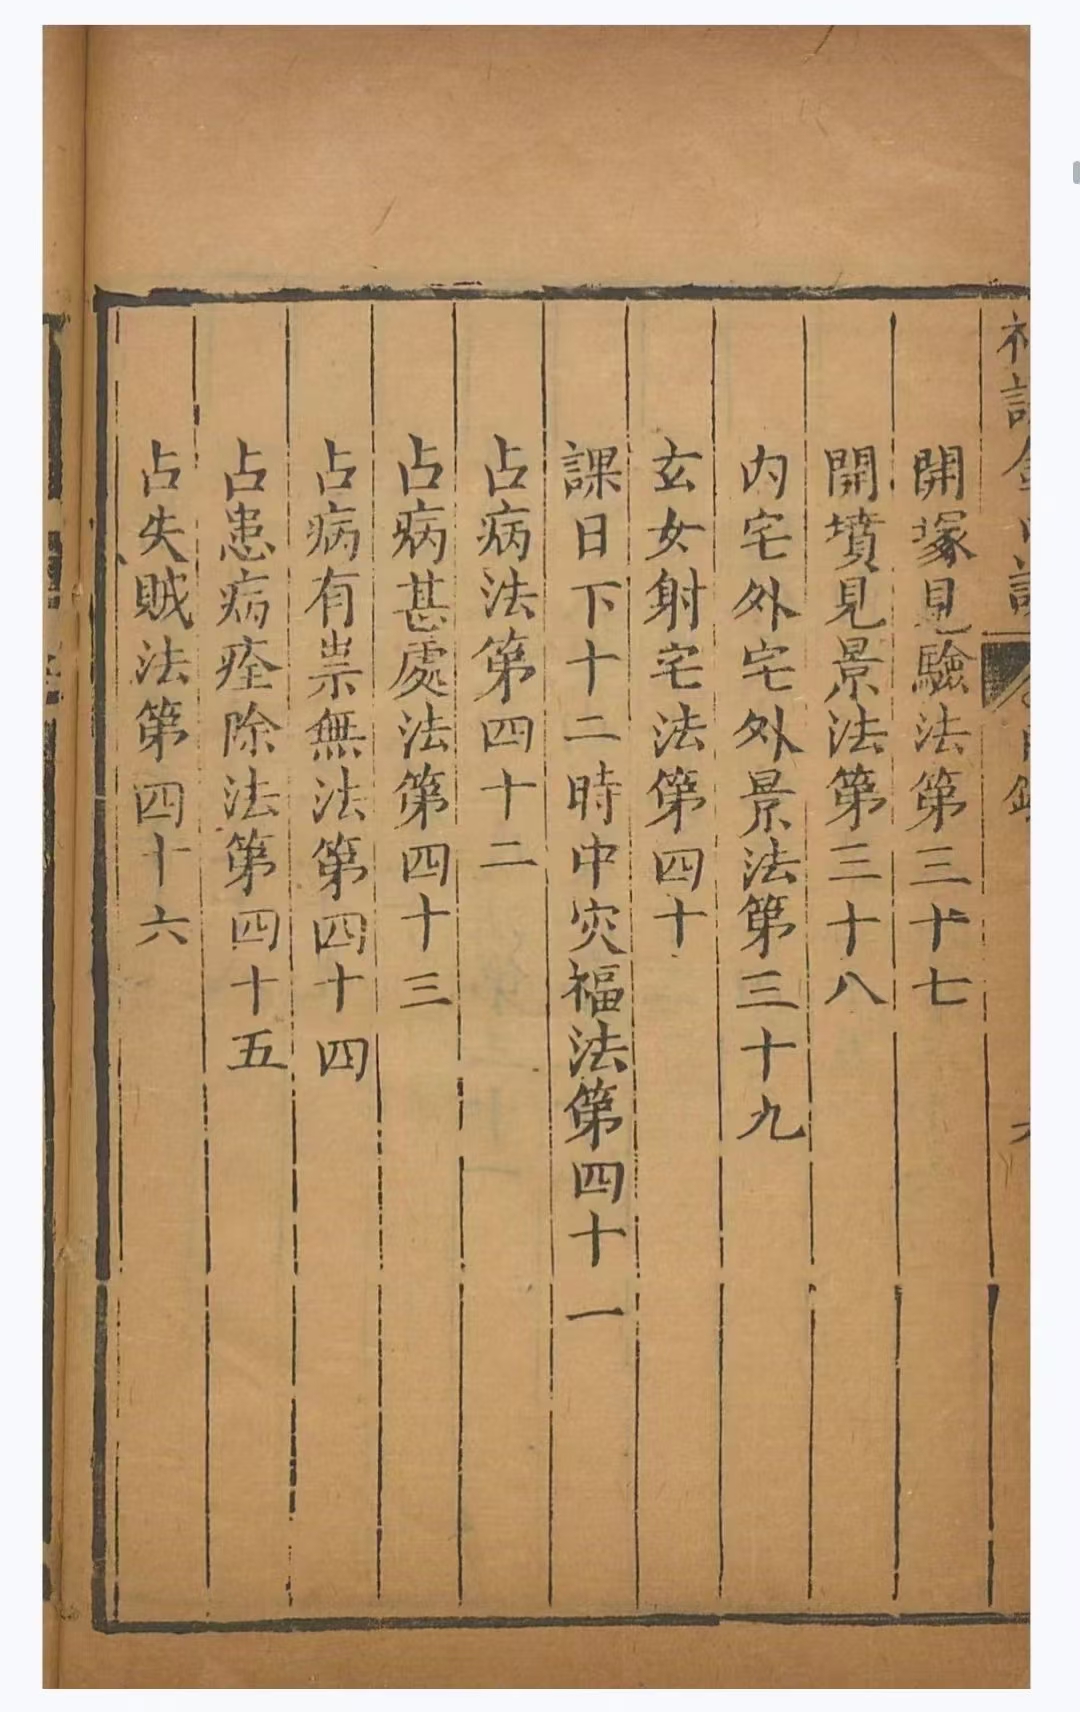 開塚見驗法第三十七
開墳見景法第三十八
内宅外宅外景法第三十九
玄女射宅法第四十
課日下十二時中灾福法第四十一
占病法第四十二
占病甚處法第四十三
占病有祟無法第四十四
占患病痊除法第四十五
占失賊法第四十六